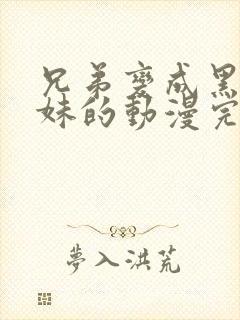 兄弟變成黑
妹的動漫完
夢入洪荒